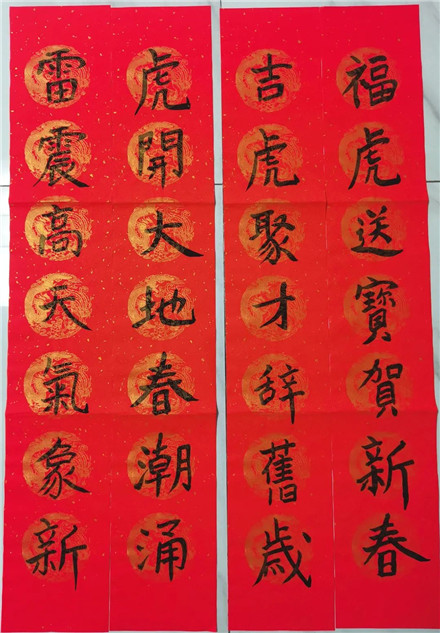 福虎送寶賀新春
吉虎聚才辞舊歳
虎開大地春潮涌
雷震高天氣象新